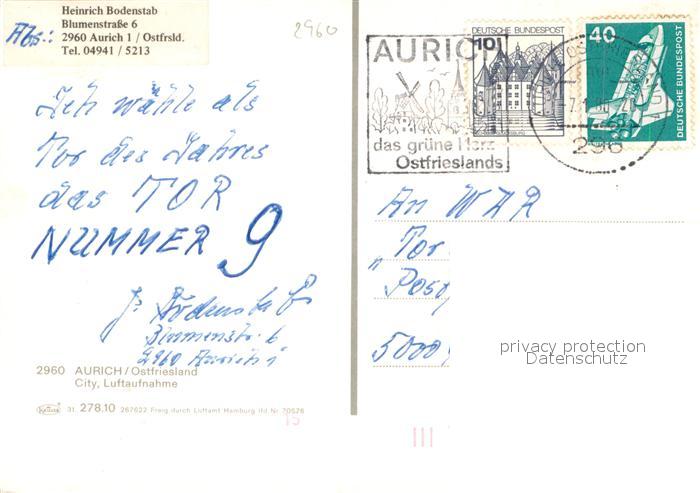 Heinrich Bodenstab
Blumenstraße 6
2960 Aurich 1 / Ostfrsld.
Tel. 04941 / 5213
Abs.:
2960
Ich wähle als
Tor des Jahres
das TOR
NUMMER 9
Bodenstab
Blumenstr. 6
2960 Aurich 1
2960 AURICH / Ostfriesland
City, Luftaufnahme
Krüger
31. 278.10 267622 Freig durch Luftamt Hamburg lfd Nr 70526
15
AURICH
das grüne Herz
Ostfrieslands
DEUTSCHE BUNDESPOST
10
40
DEUTSCHE BUNDESPOST
296
An WDR
"Tor
Post
5000
privacy protection
Datenschutz